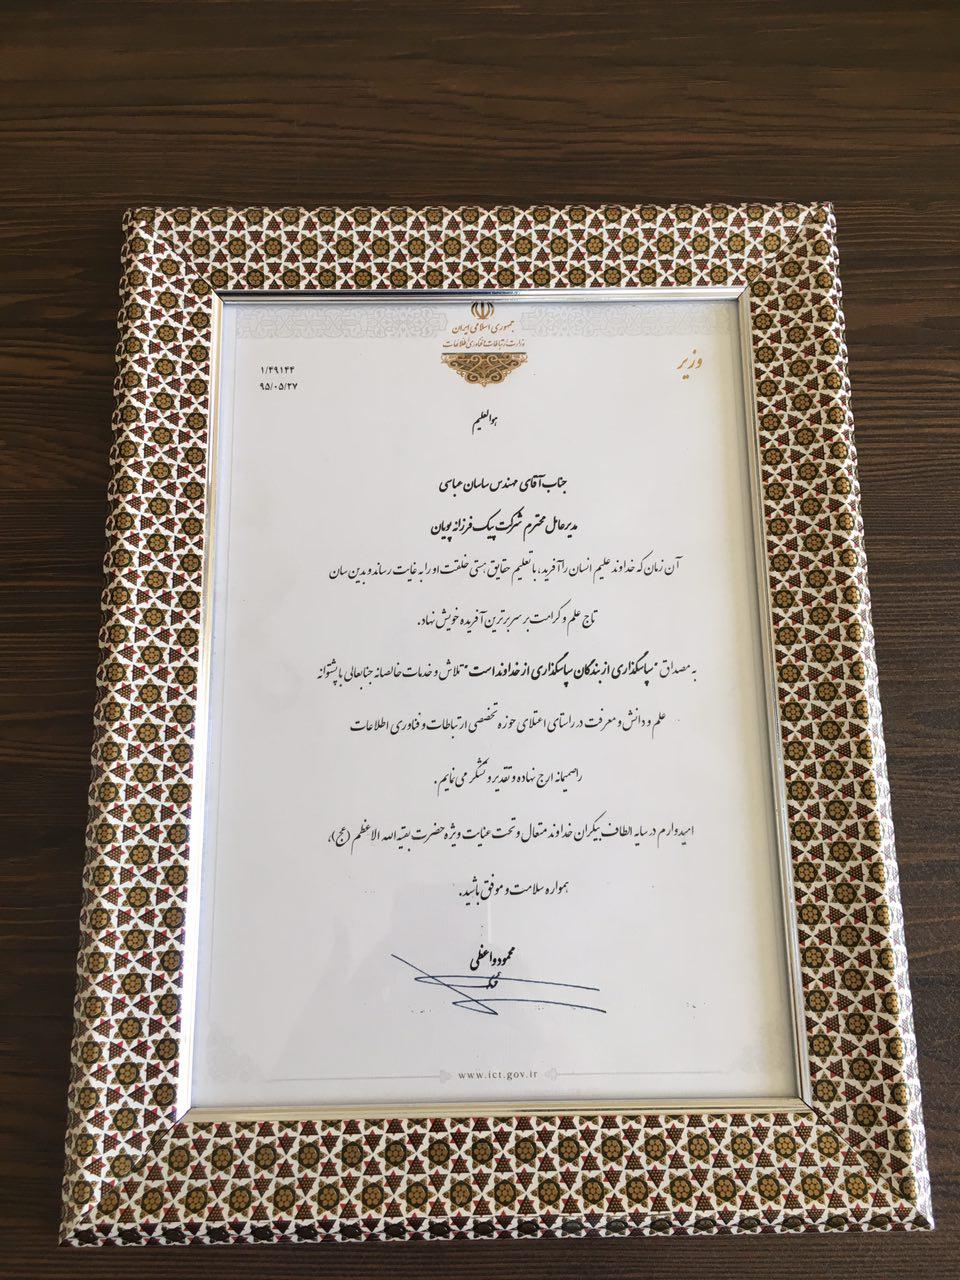 جمهوری اسلامی ایران
وزارت ارتباطات و فناوری اطلاعات
وزیر
۱/۴۹۱۴۴
۹۵/۰۵/۲۷
هوالعلیم
جناب آقای مهندس ساسان عباسی
مدیرعامل محترم شرکت پیک فرزانه پویان
آن زمان که خداوند علیم انسان را آفرید، با تعلیم حقایق هستی خلقت او را به غایت رساند و بدین سان
تاج علم و کرامت بر سر برترین آفریده خویش نهاد.
به مصداق "سپاسگذاری از بندگان سپاسگذاری از خداوند است" تلاش و خدمات خالصانه جنابعالی با پشتوانه
علم و دانش و معرفت در راستای اعتلای حوزه تخصصی ارتباطات و فناوری اطلاعات
را صمیمانه ارج نهاده و تقدیر و تشکر می نمایم.
امیدوارم در سایه الطاف بیکران خداوند متعال و تحت عنایت ویژه حضرت بقیه الله الاعظم (عج)،
همواره سلامت و موفق باشید.
محمود واعظی
www.ict.gov.ir